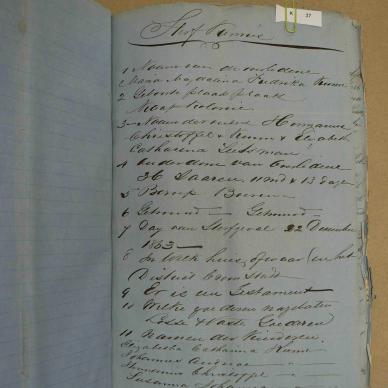 K 37
Sterf Kennis
1 Naam van de overledene
Maria Magdalena Fredrika Kunne
2 Geboorte plaats plaats
Kaap Kolonie
3 Naam der ouders Hermanus
Christoffel Kunn & Elizabeth
Catharina
4 Ouderdom van Overledene
36 Jaaren 11 md & 13 dagen
5 Beroep Boeren
6 Getrouwd Getrouwd
7 Dag van Sterfgeval 22 December
1863
8 In welk huis of waar in het
District Cronstadt
9 Er is een Testament
10 Welke goederen nagelaten
Losse & Vaste Goederen
11 Namen der Kinderen
Elizabetha Catharina Kunn
Johannes
Hermanus Christoffel
Susanna Johanna